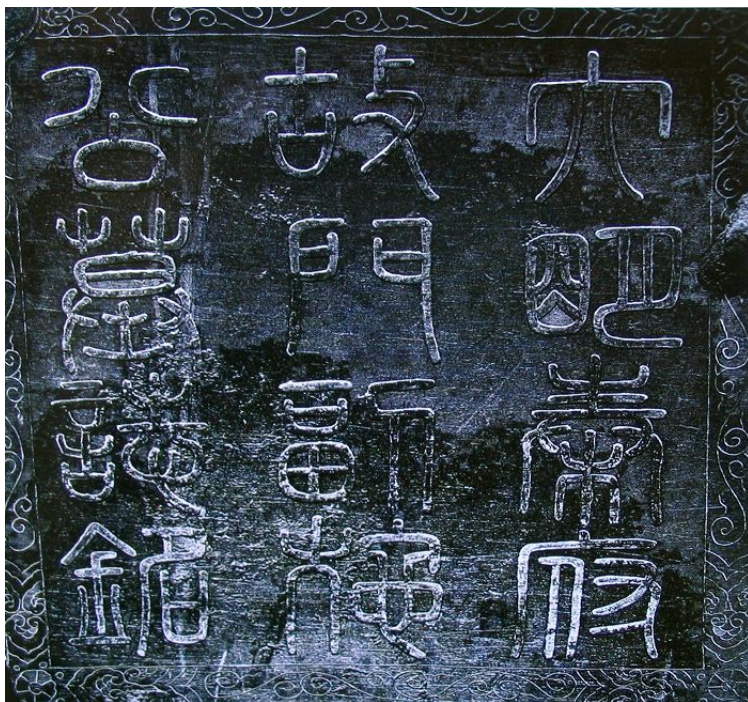 大明秦府
故門副梅
公墓誌銘